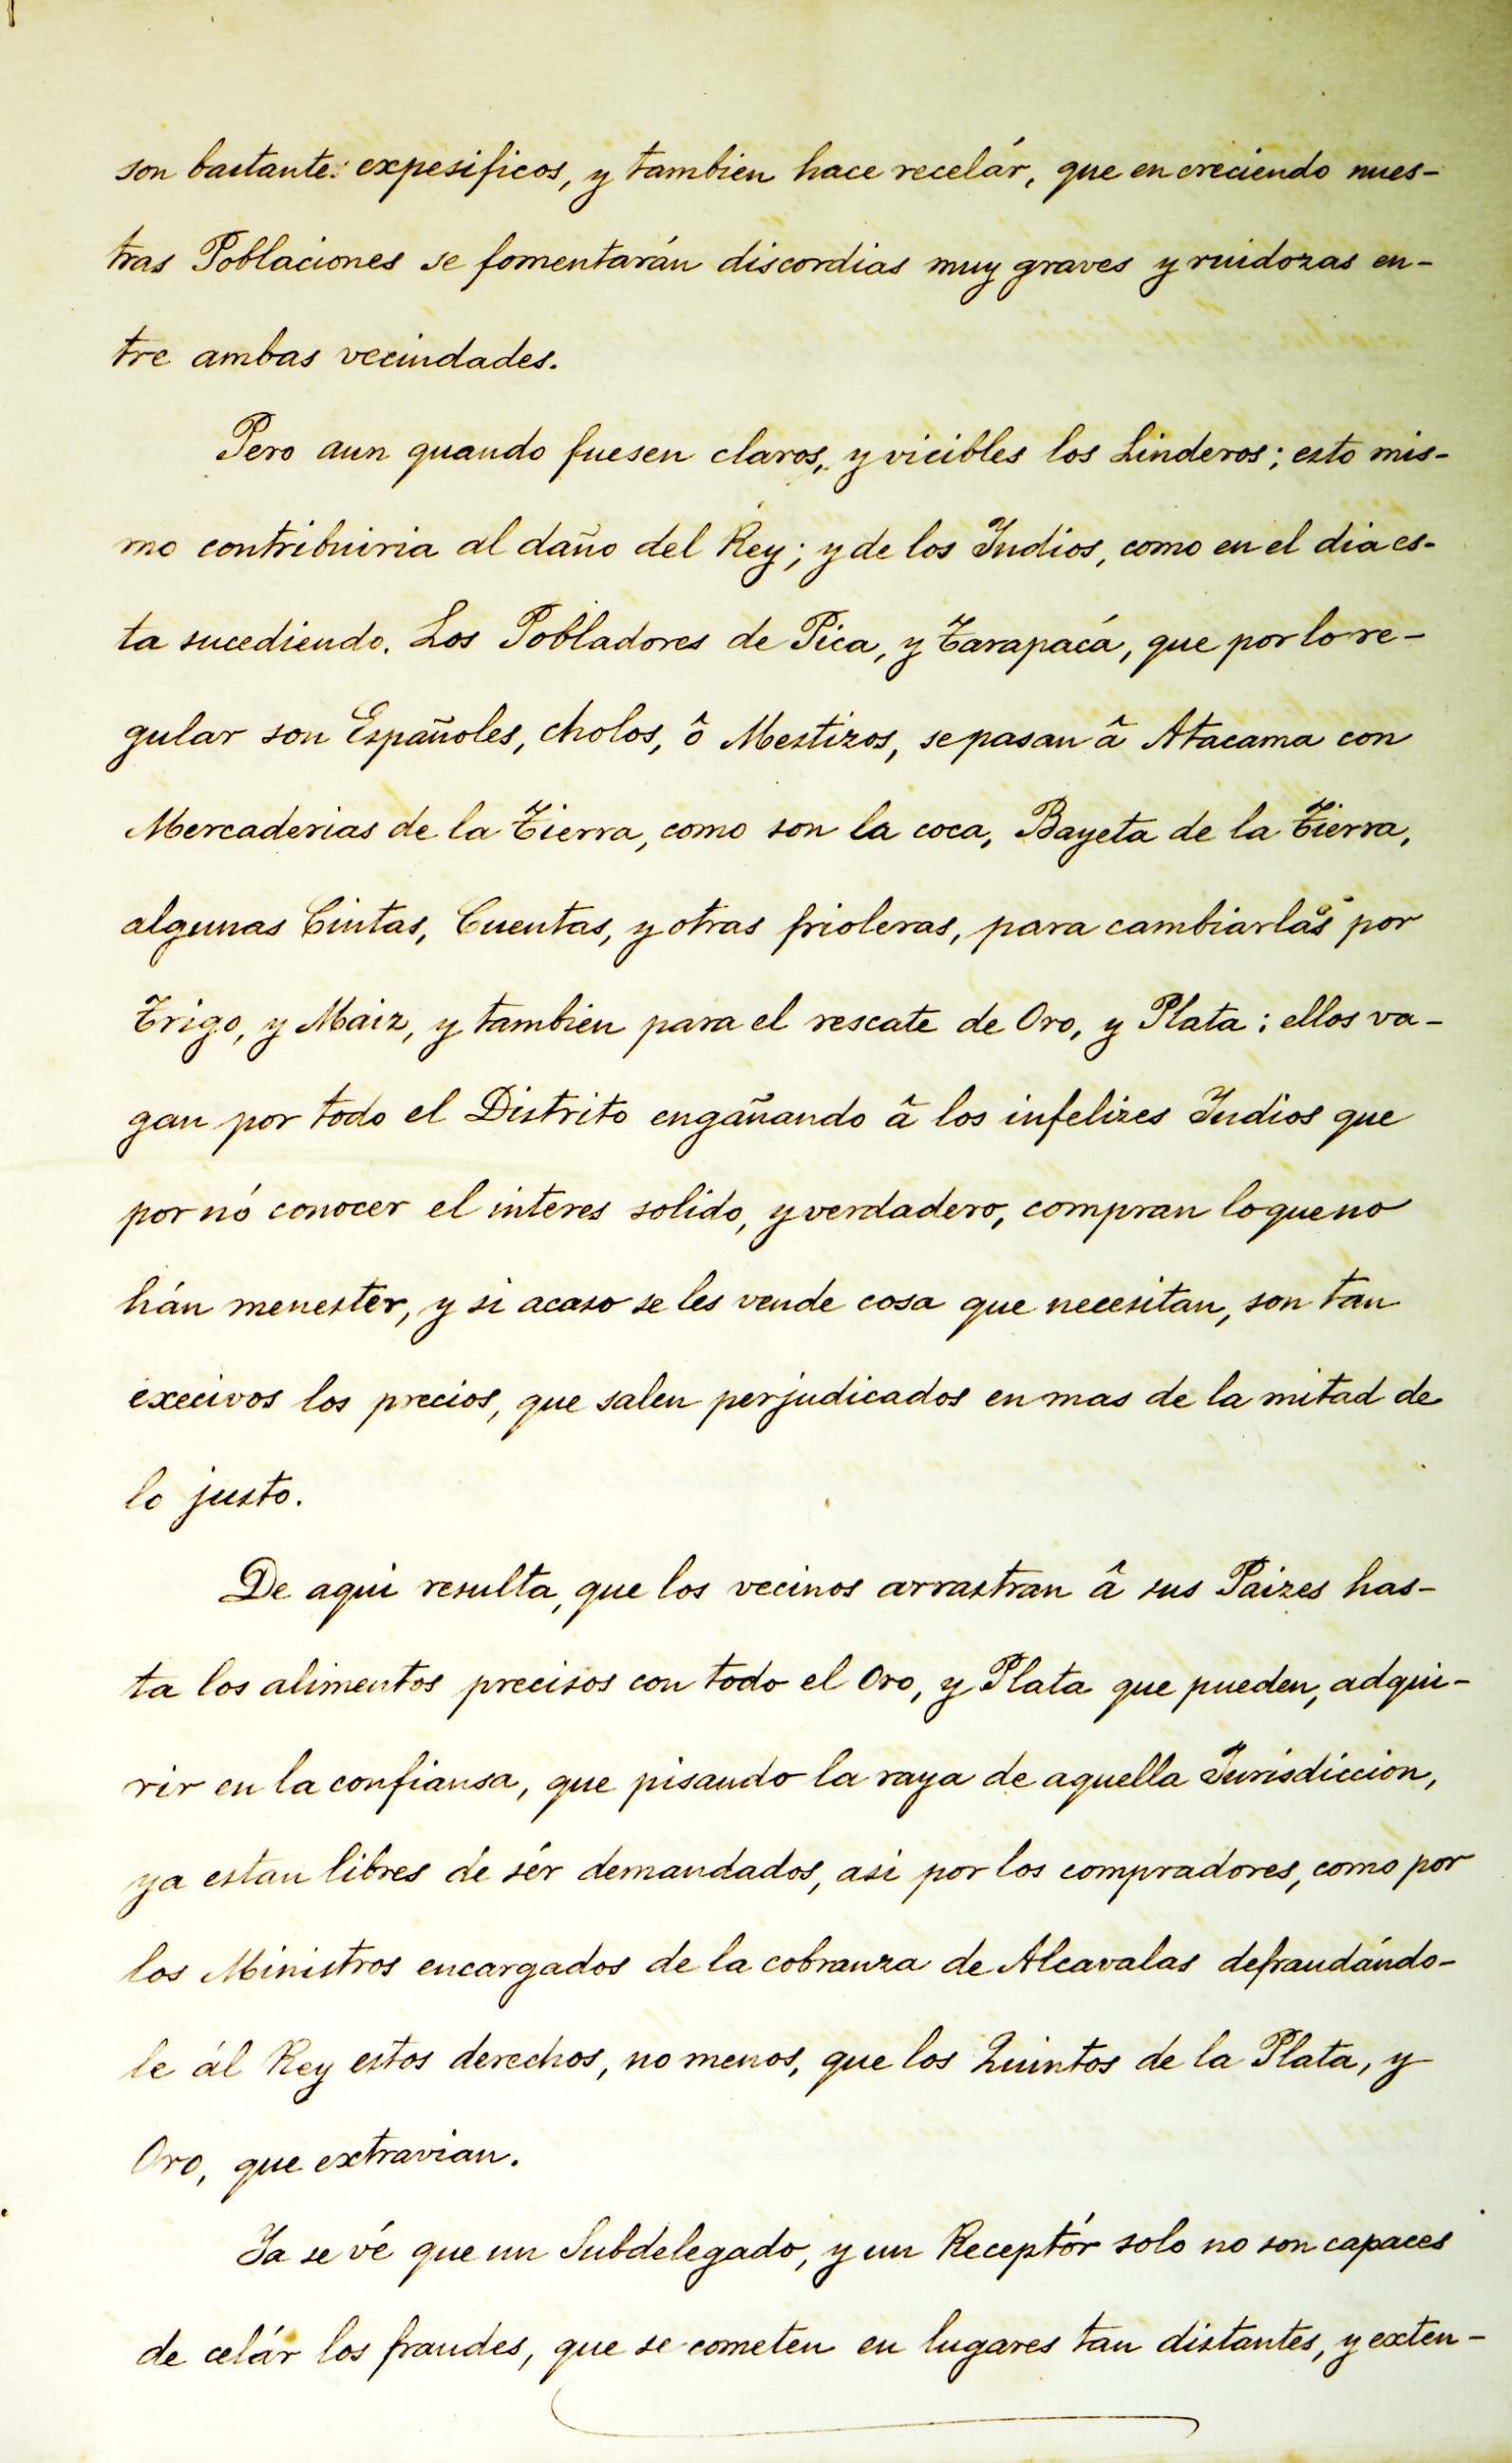 son bastante: expesificos, y tambien hace recelár, que en creciendo nues-
tras Poblaciones se fomentarán discordias muy graves y ruidozas en-
tre ambas vecindades.
Pero aun quando fuesen claros, y vicibles los Linderos; esto mis-
mo contribuiria al daño del Rey; y de los Indios, como en el dia es-
ta sucediendo. Los Pobladores de Pica, y Tarapacá, que por lo re-
gular son Españoles, cholos, ô Mestizos, se pasan â Atacama con
Mercaderias de la Tierra, como son la coca, Bayeta de la Tierra,
algunas Cintas, Cuentas, y otras frioleras, para cambiarlas por
Trigo, y Maiz, y tambien para el rescate de Oro, y Plata: ellos va-
gan por todo el Distrito engañando â los infelizes Indios que
por nó conocer el interes solido, y verdadero, compran lo que no
hán menester, y si acaso se les vende cosa que necesitan, son tan
execivos los precios, que salen perjudicados en mas de la mitad de
lo justo.
De aqui resulta, que los vecinos arrastran â sus Paizes has-
ta los alimentos precisos con todo el Oro, y Plata que pueden, adqui-
rir en la confiansa, que pisando la raya de aquella Jurisdiccion,
ya estan libres de sér demandados, asi por los compradores, como por
los Ministros encargados de la cobranza de Alcavalas defraudándo-
le ál Rey estos derechos, no menos, que los Quintos de la Plata, y
Oro, que extravian.
Ya se vé que un Subdelegado, y un Receptór solo no son capaces
de celár los fraudes, que se cometen en lugares tan distantes, y exten-